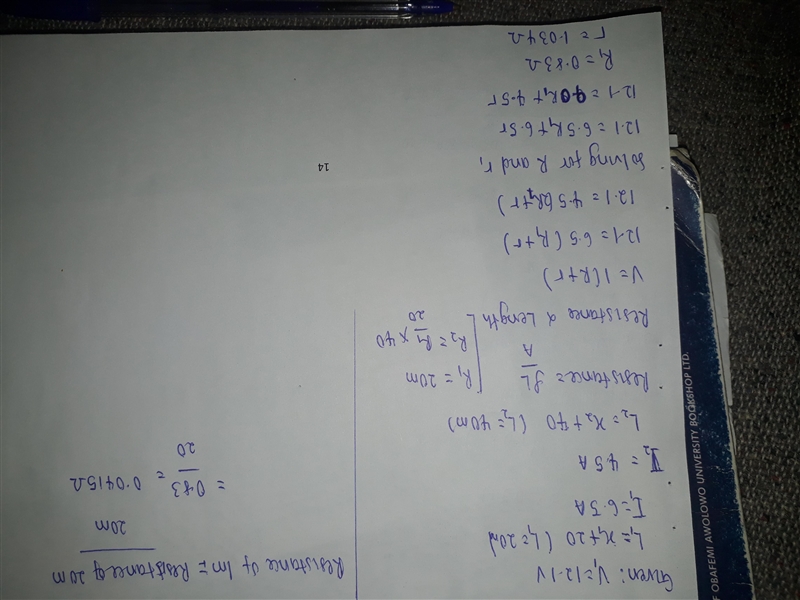 Given: V₁ = 12.1V
L₁ = x₁+20 (L₁=20m)
I₁ = 6.5A
I₂ = 4.5A
L₂ = x₂+40 (L₂=40m)
Resistance = ρL/A
Resistance α Length
R₁ = 20m
R₂ = R₁/20 × 40
V = I(R+r)
12.1 = 6.5(R₁+r)
12.1 = 4.5(2R₁+r)
Solving for R and r,
12.1 = 6.5R₁+6.5r
12.1 = 90R₁+4.5r
R₁ = 0.83Ω
r = 1.034Ω
Resistance of 1m = Resistance of 20m
20m
= 0.83/20 = 0.0415Ω
14
OF OBAFEMI AWOLOWO UNIVERSITY BOOKSHOP LTD.